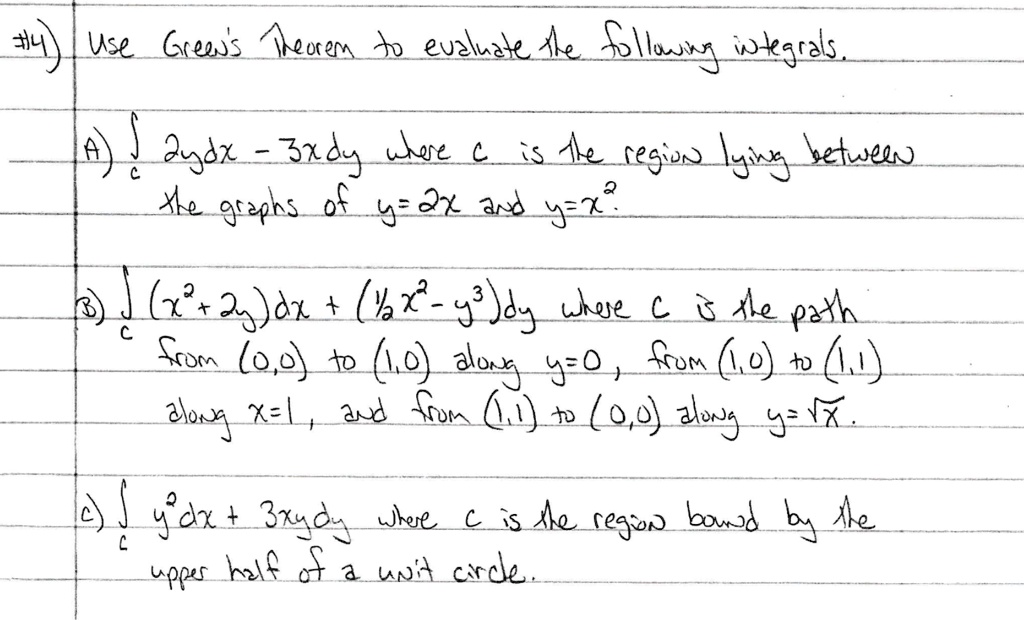 #4) Use Green's Theorem to evaluate the following integrals.
A) ∫ 2ydx - 3xdy where c is the region lying between
c
the graphs of y=2x and y=x².
B) ∫ (x²+2y)dx + (½x²-y³)dy where C is the path
C
from (0,0) to (1,0) along y=0, from (1,0) to (1,1)
along x=1, and from (1,1) to (0,0) along y=√x.
c) ∫ y²dx + 3xydy where c is the region bound by the
C
upper half of a unit circle.